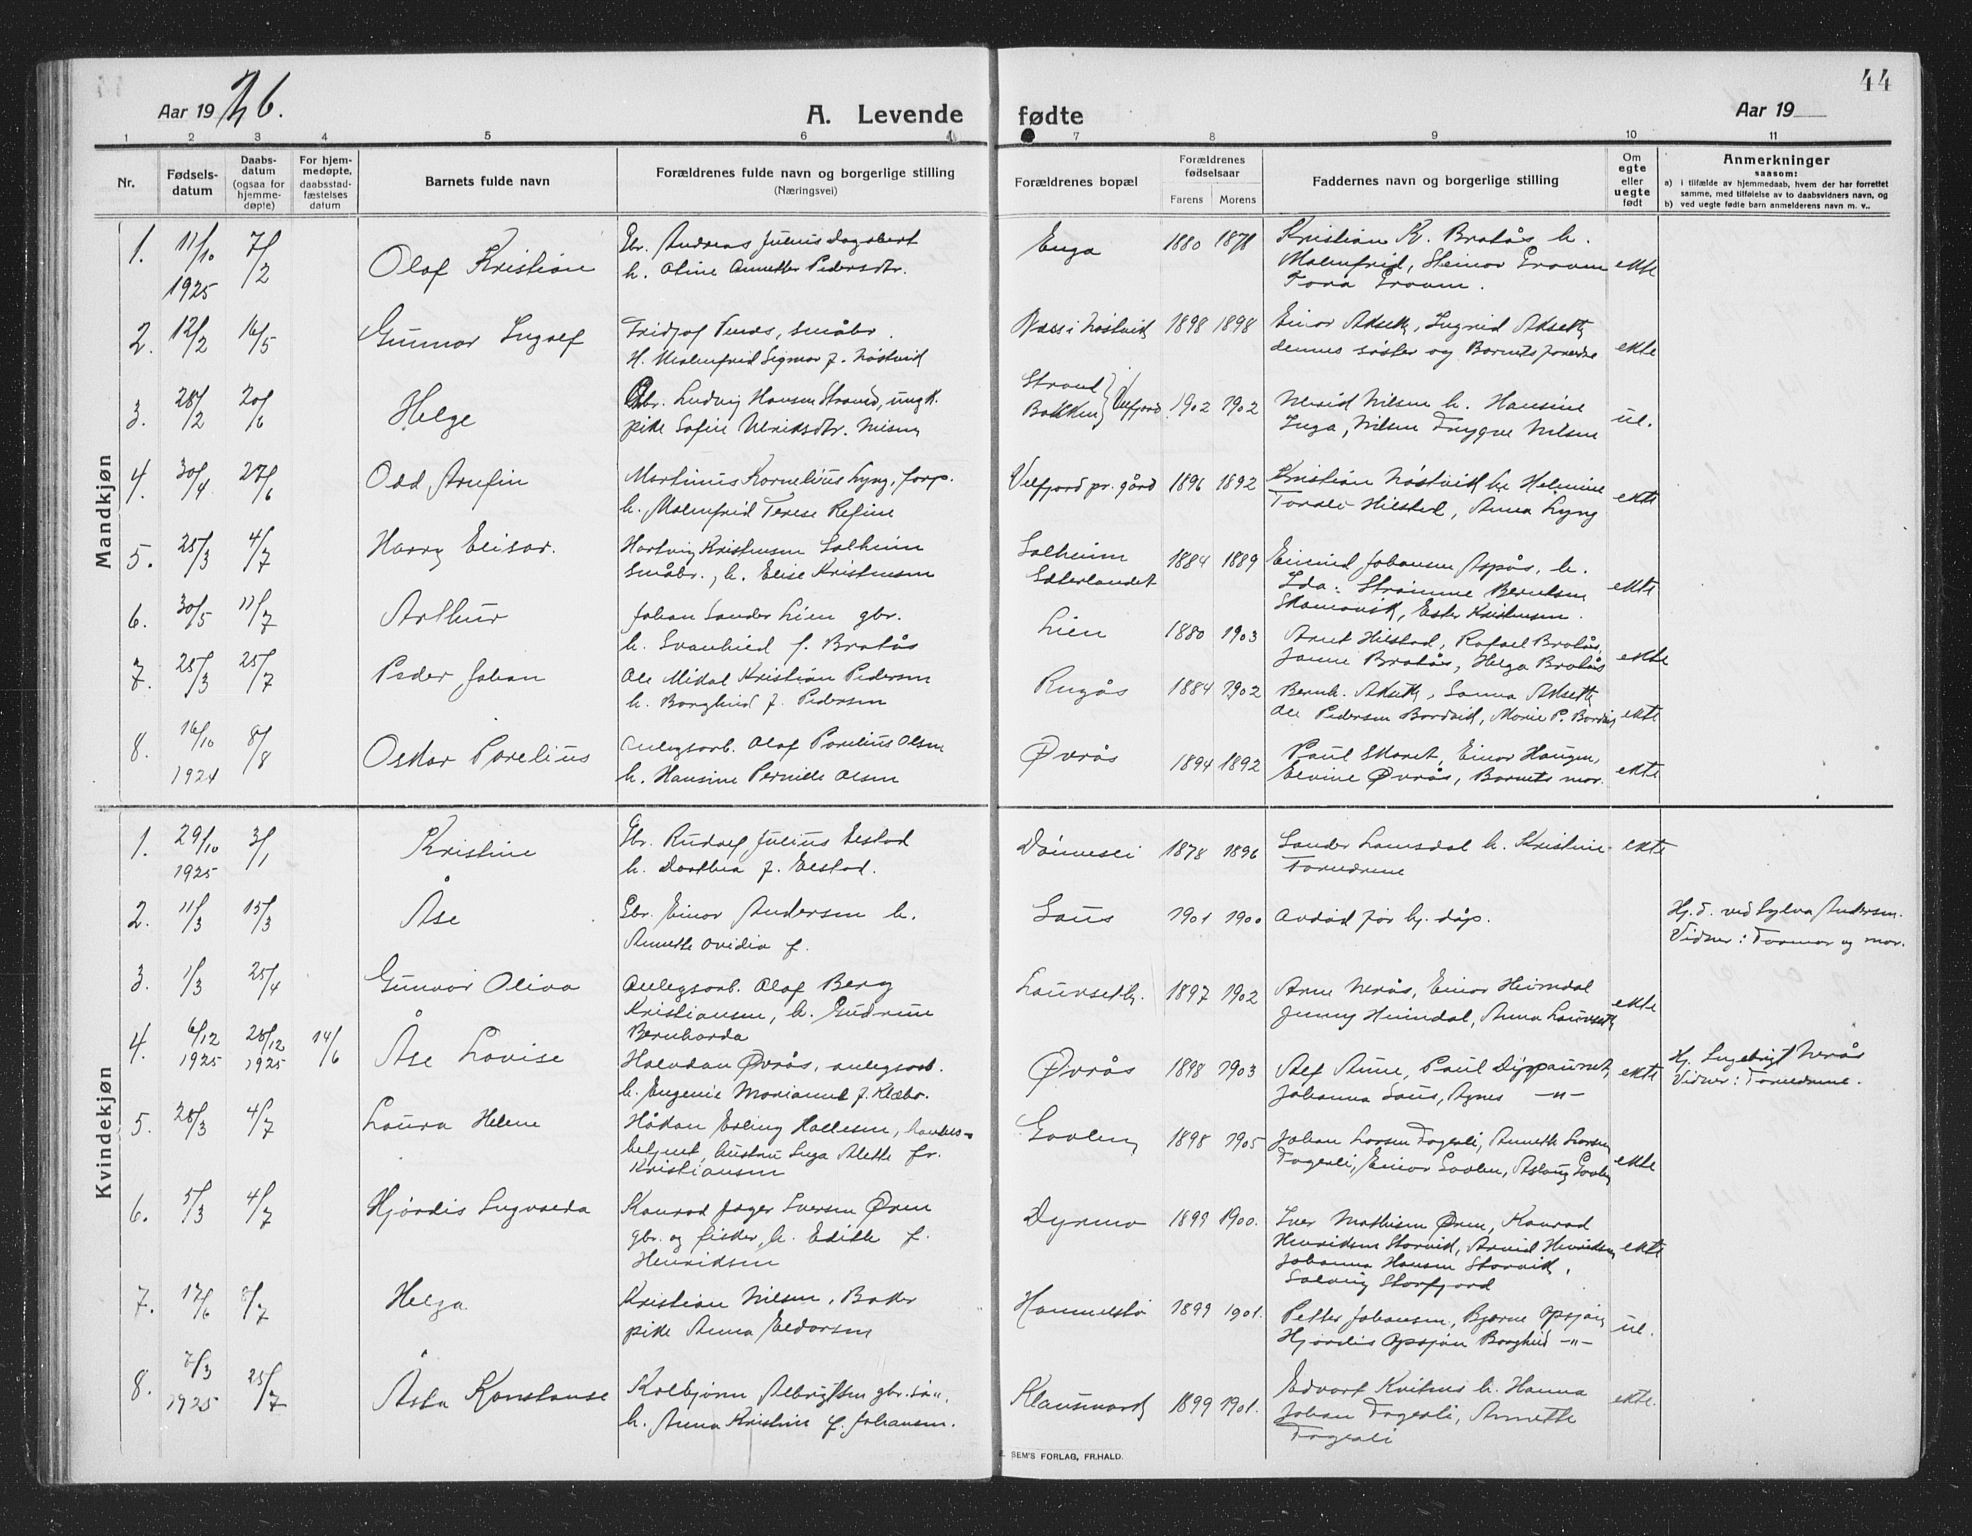 44
Aar 1926.
A. Levende fødte
Aar 19
1 2 3 4 5 6 7 8 9 10 11
Nr.
Fødsels-
datum
Daabs-
datum
(ogsaa for
hjemme-
døpte)
For hjem-
medøpte,
daabsstad-
fæstelses
datum
Barnets fulde navn
Forældrenes fulde navn og borgerlige stilling
(Næringsvei)
Forældrenes bopæl
Forældrenes
fødselsaar
Farens Morens
Faddernes navn og borgerlige stilling
Om
egte
eller
uegte
født
Anmerkninger
saasom:
a) i tilfælde av hjemmedaab, hvem der har forrettet
samme, med tilføielse av to daabsvidners navn, og
b) ved uegte fødte barn anmelderens navn m. v..
Mandkjøn
1. 11/10 1925 7/2 Olaf Kristian
Gbr. Andreas Julius Dagsbert
h. Oline Annette Pedersdtr.
Enga 1880 1878
Kristian K. Bratås h.
Malmfrid, Steinar Groven
Tora Groven.
ekte
2. 12/2 16/5 Gunnar Ingolf
Fridjof Venes, småbr.
H. Malmfrid Sigmor f. Nøstvid
Næss i Nøstvik 1898 1898
Einar Aksetz, Ingrid Aksetz
dennes søster og Barnets foreldre
ekte
3. 28/2 20/6 Helge
Gbr. Ludvig Hansen Strand, ungk.
pike Sofie Ulriksdtr. Nilsen
Strand
Bakken } Velfjord 1902 1902
Nilsen h. Hansine
Inga, Nilsen Trygve Nilsen
ul.
4. 30/4 27/6 Odd Arnfin
Martinus Kornelius Lyng, forp.
h. Malmfrid Terese Regine
Velfjord pr. gård 1896 1892
Kristian Nøstvik h. Helmine
Hilstad, Anna Lyng
ekte
5. 25/3 4/7 Harry Elisar.
Hartvig Kristensen Solheim
Småbr., h. Elise Kristensen
Solheim
Sæterlandet 1884 1889
Eivind Johansen Aspås, h.
Ida: Strømme Berntsen
Skomovik, Ester Kristensen.
ekte
6. 30/5 11/7 Arthur
Johan Sander Lien gbr.
h. Svanhild f. Bratås
Lien 1880 1903
Arnt Hilstad, Rafael Bratås,
Janni Bratås, Helga Bratås
ekte
7. 25/3 25/7 Peder Johan
Ole Midal Kristian Pedersen
h. Borghild f. Pedersen
Rugås 1884 1902
Bernh. Aksetz, Sanna Aksetz
Ole Pedersen Bordvik, Marie P. Bordvig
ekte
8. 16/10 1924 8/8 Oskar Porelius
Anlegsarb. Olaf Porelius Olsen
h. Hansine Pernille Olsen
Øvrås 1894 1892
Paul Skaret, Einar Haugen,
Elvine Øvrås, Barnets mor.
ekte
Kvindekjøn
1. 29/10 1925 3/1 Kristine
Gbr. Rudolf Julius Eistad
h. Dorthea f. Eistad.
Dønnesli 1878 1896
Sander Lamsdal h. Kristine
Foreldrene
ekte
2. 11/3 15/3 Åse
Gbr. Einar Andersen h.
Annette Ovidia f.
Saus 1901 1900
Avdød før kj. dåp.
Hj. d. ved Sylva Andersen.
Vidner: Farmor og mor.
3. 1/3 25/4 Gunvor Oliva
Anlegsarb. Olaf Berg
Kristiansen, h. Gudrun
Bernharda
Laursetg. 1897 1902
Arne Nerås, Einar Heimdal
Jenny Heimdal, Anna Laursetz
ekte
4. 6/12 1925 28/12 1925 14/6 Åse Lovise
Halvdan Øvrås, anlegsarb.
h. Eugenie Marianne f. Klæbo.
Øvrås 1898 1903
Alf Aune, Paul Dyppaunet,
Johanna Saus, Agnes —"—
ekte
Hj. Ingebrigt Nerås
Vidner: Foreldrene.
5. 28/3 4/7 Laura Helene
Håkon Erling Hallesen, handels-
betjent, hustru Inga Alette f.
Kristiansen
Godlen 1898 1905
Johan Larsen Fagerli, Annette Larsen
Fagerli, Einar Godlen, Aslaug Godlen
ekte
6. 5/3 4/7 Hjørdis Ingvalda
Konrad Jager Iversen Øren
gbr. og fisker, h. Edith f.
Henriksen
Dyrmo 1899 1900.
Iver Mathisen Øren, Konrad
Henriksen Storvik, Arvid Henriksen
Johanna Hansen Storvik,
Solveig Storfjord
ekte
7. 17/6 8/7 Helga
Kristian Nilsen, Baker
pike Anna Eldorsen
Hommelstø 1899 1901.
Petter Johansen, Bjarne Opsjøn
Hjørdis Opsjøn Borghild —"—
ul.
8. 7/3 1925 25/7 Åsta Konstanse
Kolbjørn Albrigtsen gbr.
h. Anna Kristine f. Johansen.
Klausmark 1899 1901.
Edvart Kvitnes h. Hanna
Johan Fagerli, Annette
Fagerli
ekte.
SEM'S FORLAG, FR.HALD.